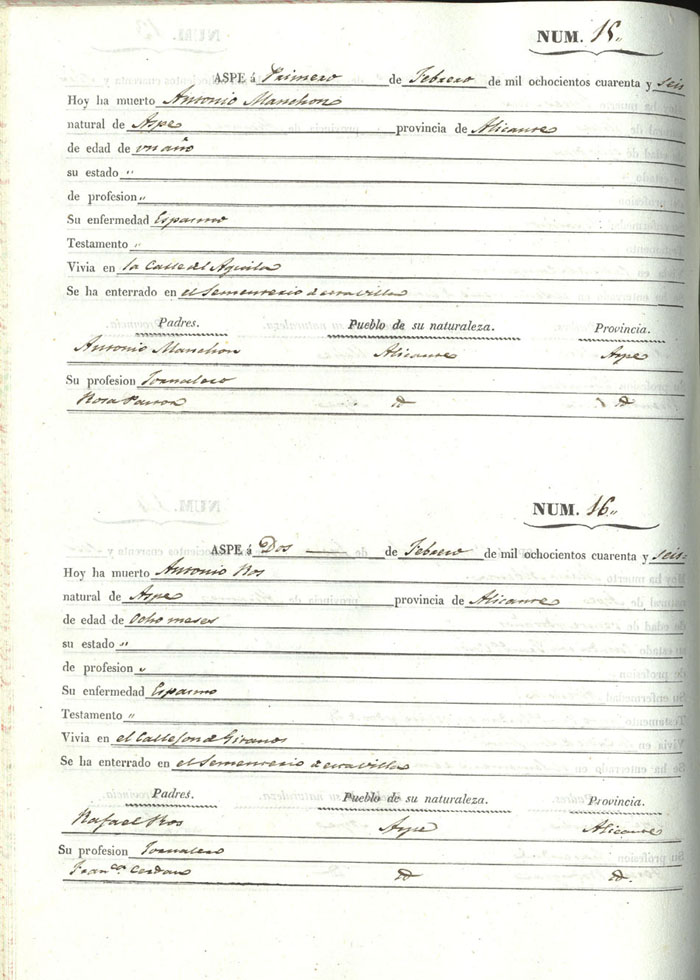 NUM. 15.
ASPE á Primero de Febrero de mil ochocientos cuarenta y seis
Hoy ha muerto Antonio Manchon
natural de Aspe provincia de Alicante
de edad de un año
su estado "
de profesion "
Su enfermedad Espasmo
Testamento "
Vivia en la Calle del Aguila
Se ha enterrado en el Sementerio de esta Villa
Padres. Pueblo de su naturaleza. Provincia.
Antonio Manchon Alicante Aspe
Su profesion Jornalero
Rosa Pastor Id Id
NUM. 16.
ASPE á Dos de Febrero de mil ochocientos cuarenta y seis
Hoy ha muerto Antonio Ros
natural de Aspe provincia de Alicante
de edad de Ocho meses
su estado "
de profesion "
Su enfermedad Espasmo
Testamento "
Vivia en el Callejon de
Se ha enterrado en el Sementerio de esta Villa
Padres. Pueblo de su naturaleza. Provincia.
Rafael Ros Aspe Alicante
Su profesion Jornalero
Franca. Cerdan Id Id.